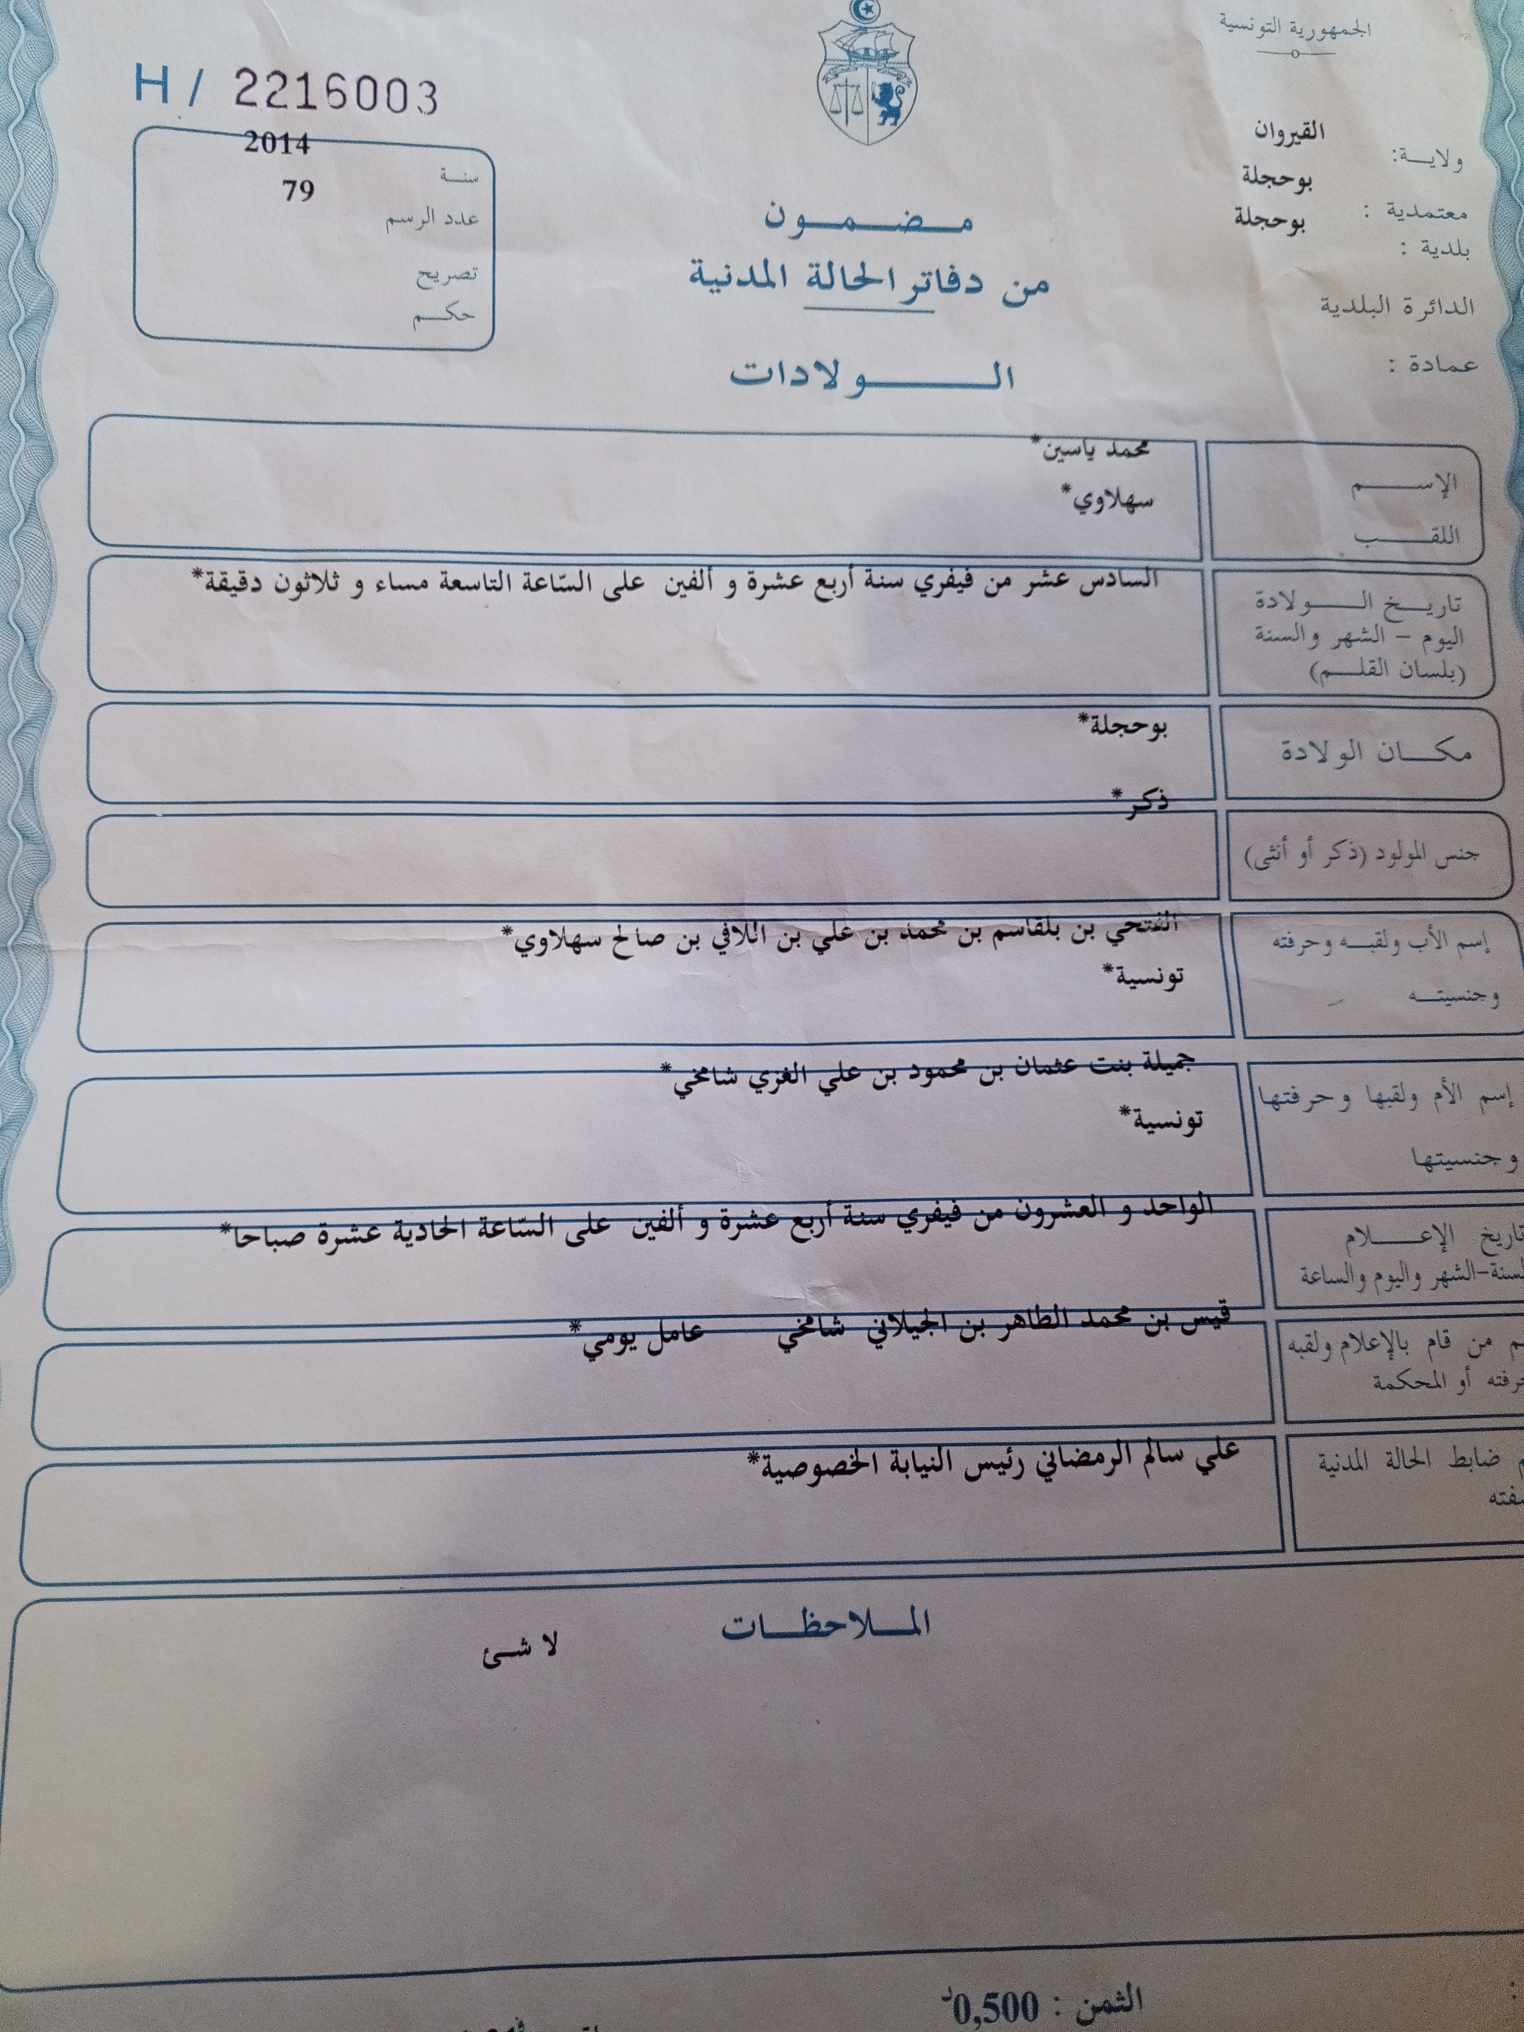 الجمهورية التونسية
H / 2216003
ولاية: القيروان
معتمدية : بوحجلة
بلدية : بوحجلة
الدائرة البلدية
عمادة :
سنة 2014
عدد الرسم 79
تصريح
حكم
مضمون
من دفاتر الحالة المدنية
الولادات
الإسم محمد ياسين*
اللقب سهلاوي*
تاريخ الولادة
اليوم - الشهر والسنة
(بلسان القلم)
السادس عشر من فيفري سنة أربع عشرة و ألفين على السّاعة التاسعة مساء و ثلاثون دقيقة*
مكان الولادة بوحجلة*
جنس المولود (ذكر أو أنثى) ذكر*
إسم الأب ولقبه وحرفته
وجنسيته
الفتحي بن بلقاسم بن محمد بن علي بن اللافي بن صالح سهلاوي*
تونسية*
إسم الأم ولقبها وحرفتها
وجنسيتها
جميلة بنت عثمان بن محمود بن علي الغزي شامخي*
تونسية*
تاريخ الإعلام
السنة-الشهر واليوم والساعة
الواحد و العشرون من فيفري سنة أربع عشرة و ألفين على السّاعة الحادية عشرة صباحا*
من قام بالإعلام ولقبه
أو المحكمة
قيس بن محمد الطاهر بن الجيلاني شامخي عامل يومي*
ضابط الحالة المدنية
علي سالم الرمضاني رئيس النيابة الخصوصية*
الملاحظات
لا شئ
الثمن : 0,500د